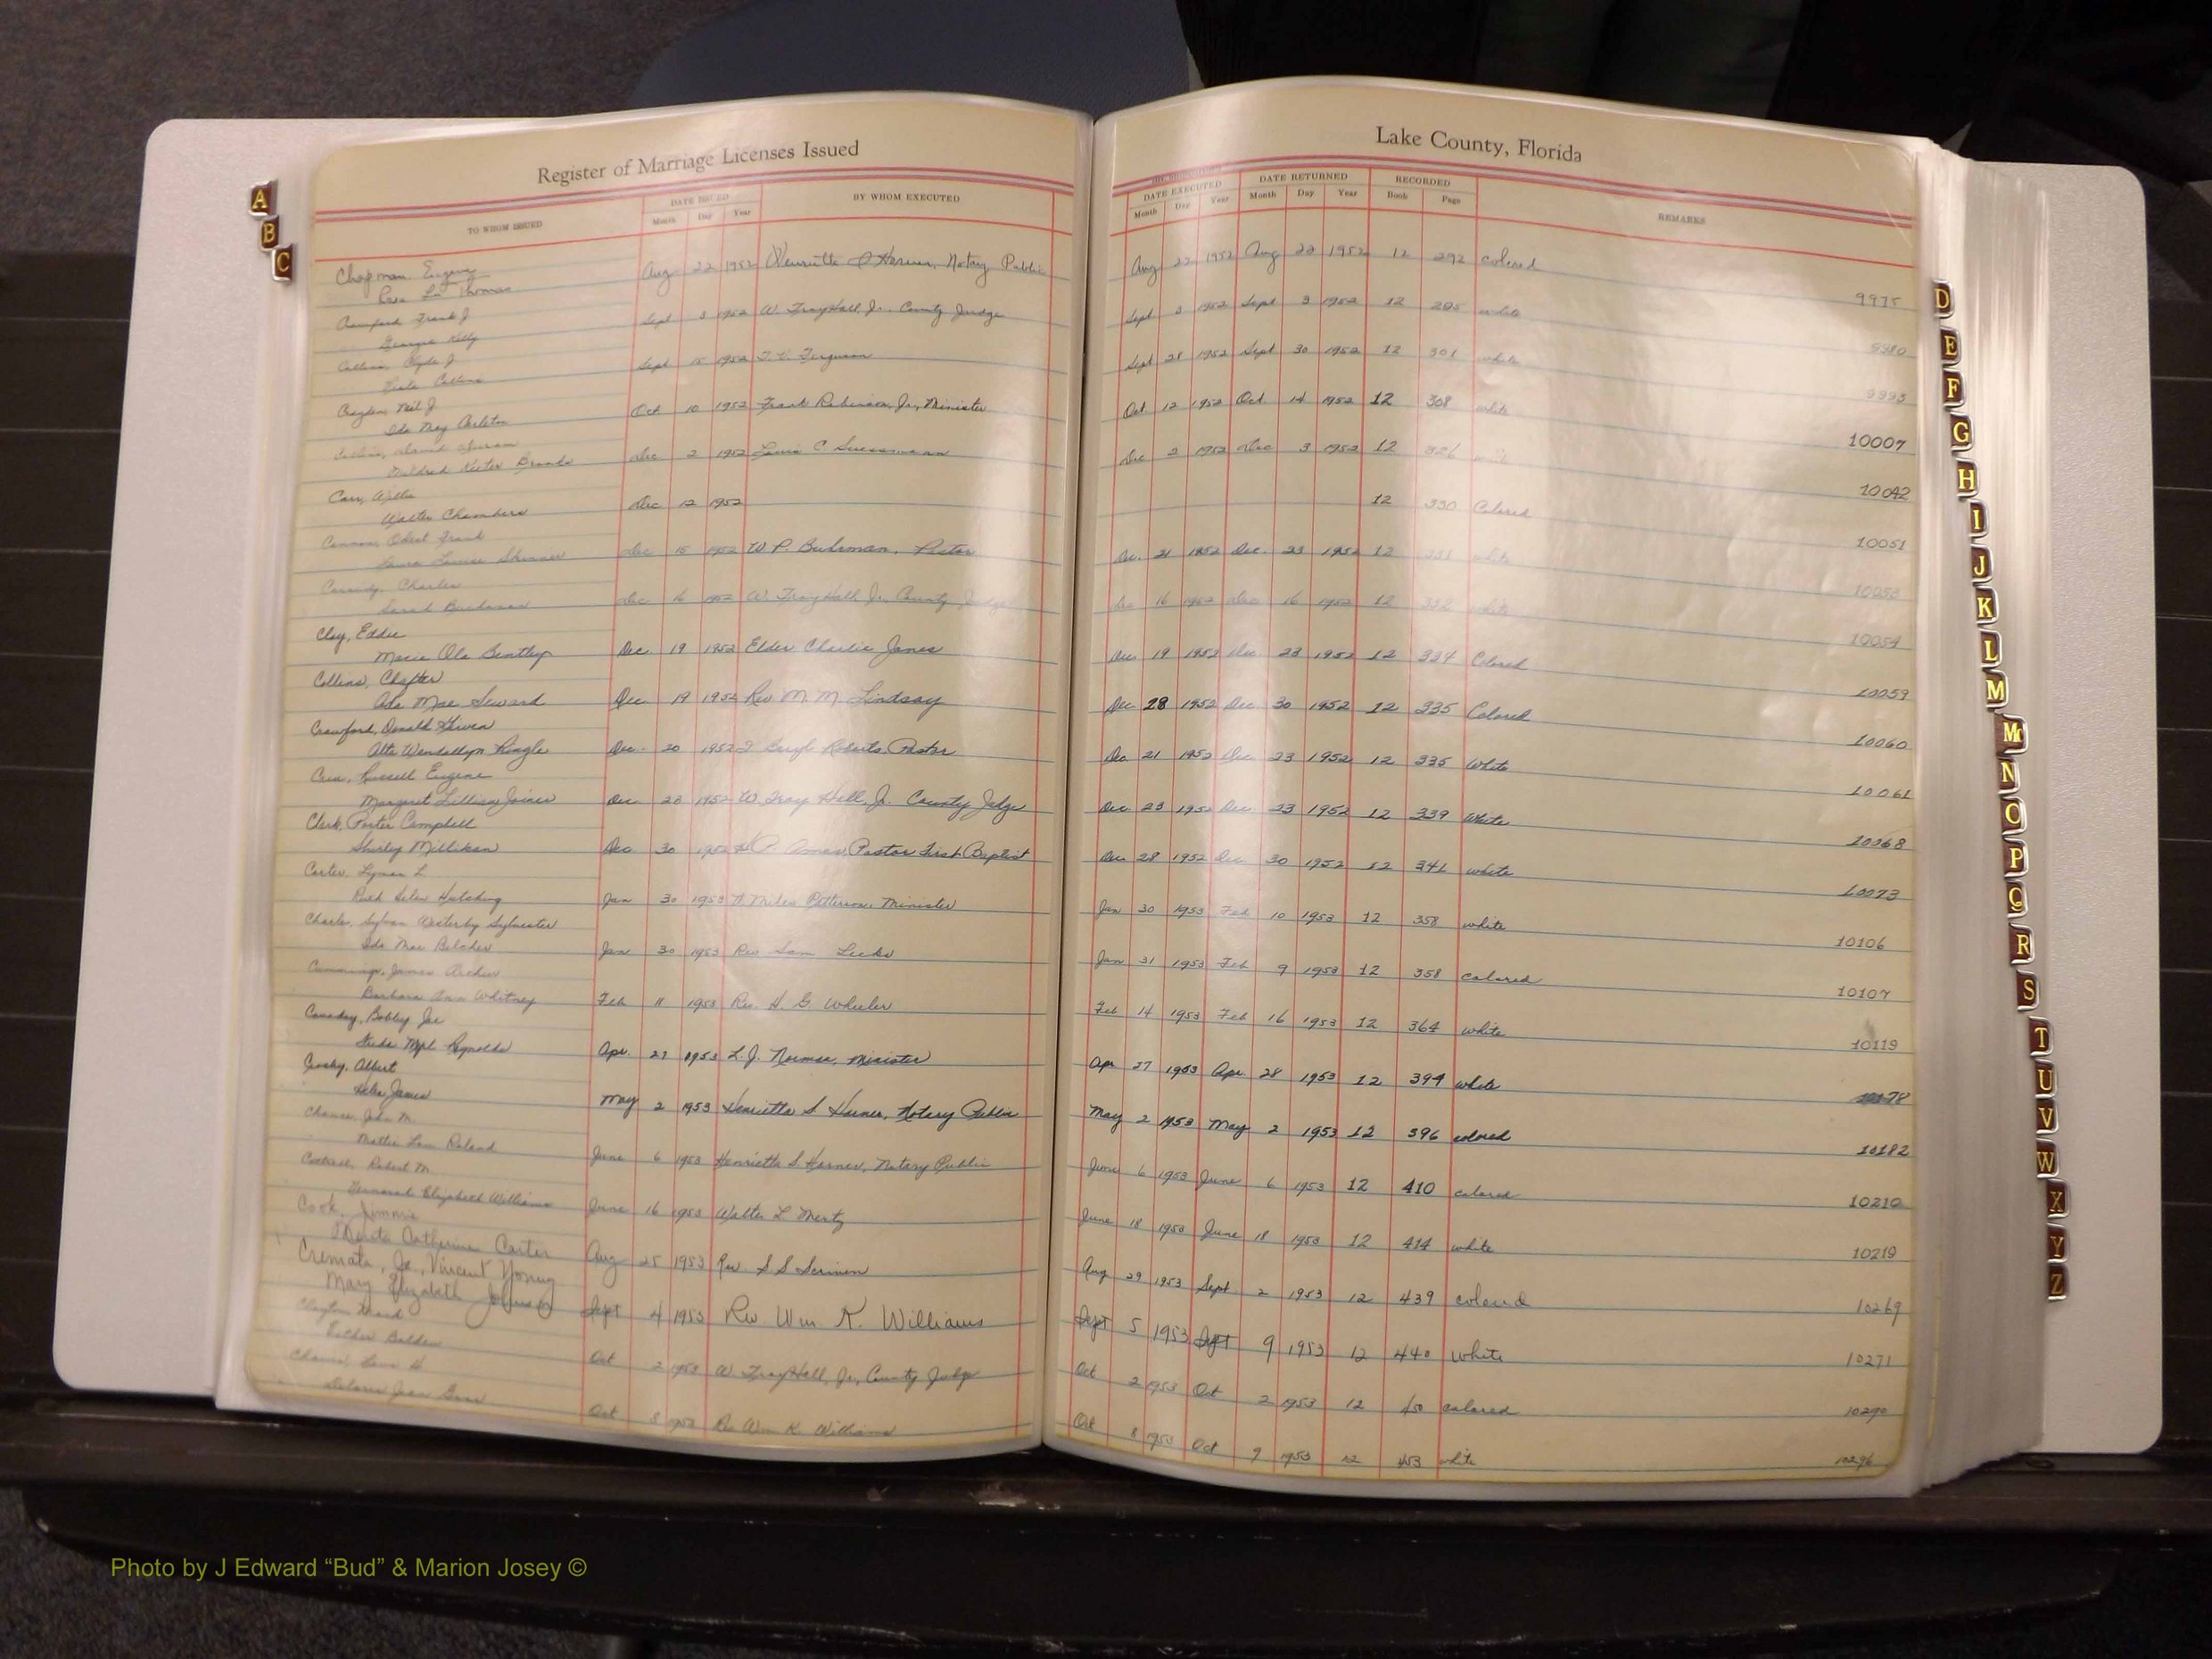 Register of Marriage Licenses Issued
Lake County, Florida
TO WHOM ISSUED DATE ISSUED Month Day Year BY WHOM EXECUTED
DATE EXECUTED Month Day Year DATE RETURNED Month Day Year RECORDED Book Page REMARKS
A
B
C
Chapman, Eugene
Thomas
Aug 22 1952 Henrietta S Harner, Notary Public Aug 22 1952 Aug 22 1952 12 292 colored 9975
Crawford Frank J
Georgia Kelly
Sept 3 1952 W. Troy Hall, Jr. County Judge Sept 3 1952 Sept 3 1952 12 295 white 9980
Collins, Clyde J.
Collins
Sept 15 1952 Ferguson Sept 28 1952 Sept 30 1952 12 301 white
Neil J.
Ida May Carleton
Oct 10 1952 Frank Robinson, Jr., Minister Oct 12 1952 Oct 14 1952 12 308 white 10007
Collins, David
Mildred Brooks
Dec 2 1952 Louis C. Dec 2 1952 Dec 3 1952 12 326 10042
Carr, Willie
Walter Chambers
Dec 12 1952 12 330 Colored 10051
Cannon, Frank
Laura Louise Skinner
Dec 15 1952 W. P. Buhrman, Pastor Dec. 21 1952 Dec. 23 1952 12 331 white 10053
Cassidy, Charles
Sarah Buchanan
Dec 16 1952 W. Troy Hall, Jr., County Judge Dec 16 1952 Dec 16 1952 12 332 white 10054
Clay, Eddie
Marie Ola Bentley
Dec. 19 1952 Elder Charlie Jones Dec 19 1952 Dec 23 1952 12 334 Colored 10059
Collins, Chester
Ada Mae Seward
Dec. 19 1952 Rev M. M. Lindsay Dec 28 1952 Dec 30 1952 12 335 Colored 10060
Crawford, Donald
Alta Wendellyn Pringle
Dec. 20 1952 Roberts, Pastor Dec 21 1952 Dec 23 1952 12 335 White 10061
Russell Eugene
Margaret Lillian Joiner
Dec. 23 1952 W. Troy Hall, Jr. County Judge Dec. 23 1952 Dec. 23 1952 12 339 White 10068
Clark, Porter Campbell
Shirley Millikan
Dec 30 1952 Pastor First Baptist Dec. 28 1952 Dec 30 1952 12 341 white 10073
Carter, Lyman L.
Ruth Helen Hutching
Jan 30 1953 Miles Patterson, Minister Jan 30 1953 Feb 10 1953 12 358 white 10106
Charles, Sylvan Westerby Sylvester
Ida Mae Belcher
Jan 30 1953 Rev Sam Leeks Jan 31 1953 Feb 9 1953 12 358 colored 10107
Cummings, James Archer
Barbara Ann Whitney
Feb 11 1953 Rev. H. G. Wheeler Feb 14 1953 Feb 16 1953 12 364 white 10119
Bobby Joe
Reynolds
Apr. 27 1953 L. J. Minister Apr 27 1953 Apr. 28 1953 12 394 white
Albert
James
May 2 1953 Henrietta S Harner, Notary Public May 2 1953 May 2 1953 12 396 colored 10182
Chance, John M.
Mattie Lou Roland
June 6 1953 Henrietta S. Harner, Notary Public June 6 1953 June 6 1953 12 410 colored 10210
Robert M.
Elizabeth Williams
June 16 1953 Walter L Mertz June 18 1953 June 18 1953 12 414 white 10219
Cook, Jimmie
Catherine Carter
Aug 25 1953 Rev. S S Scriven Aug 29 1953 Sept 2 1953 12 439 colored 10269
Cremata, Jr., Vincent Young
Mary Elizabeth Johnson
Sept 4 1953 Rev Wm K. Williams Sept 5 1953 Sept 9 1953 12 440 White 10271
Clayton,
Esther Bolden
Oct 2 1953 W. Troy Hall, Jr., County Judge Oct 2 1953 Oct 2 1953 12 450 colored 10290
Delores Jean
Oct 8 1953 Rev Wm K. Williams Oct 8 1953 Oct 9 1953 12 453 white 10296
D
E
F
G
H
I
J
K
L
M
Mc
N
O
P
Q
R
S
T
U
V
W
X
Y
Z
Photo by J Edward “Bud” & Marion Josey ©